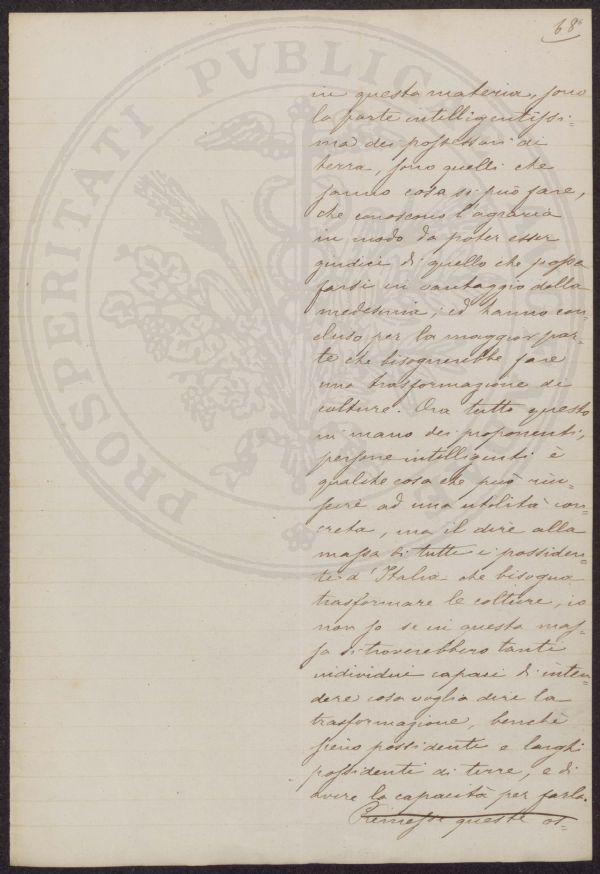 68
in questa materia, sono
la parte intelligentissi=
ma dei possessori di
terra, sono quelli che
sanno cosa si può fare,
che conoscono l'agraria
in modo da poter esser
giudici di quello che possa
farsi in vantaggio della
medesima; ed hanno con=
cluso per la maggior par=
te che bisognerebbe fare
una trasformazione di
colture. Ora tutto questo
in mano dei proponenti,
persone intelligenti è
qualche cosa che può riu=
scire ad una utilità con=
creta, ma il dire alla
massa di tutti i possiden=
ti d'Italia che bisogna
trasformare le colture, io
non so se in questa mas=
sa si troverebbero tanti
individui capaci di inten=
dere cosa voglia dire la
trasformazione, benchè
sieno possidenti e larghi
possidenti di terre, e di
avere la capacità per farla.
Premesse queste os=
PROSPERITATI PUBLIC